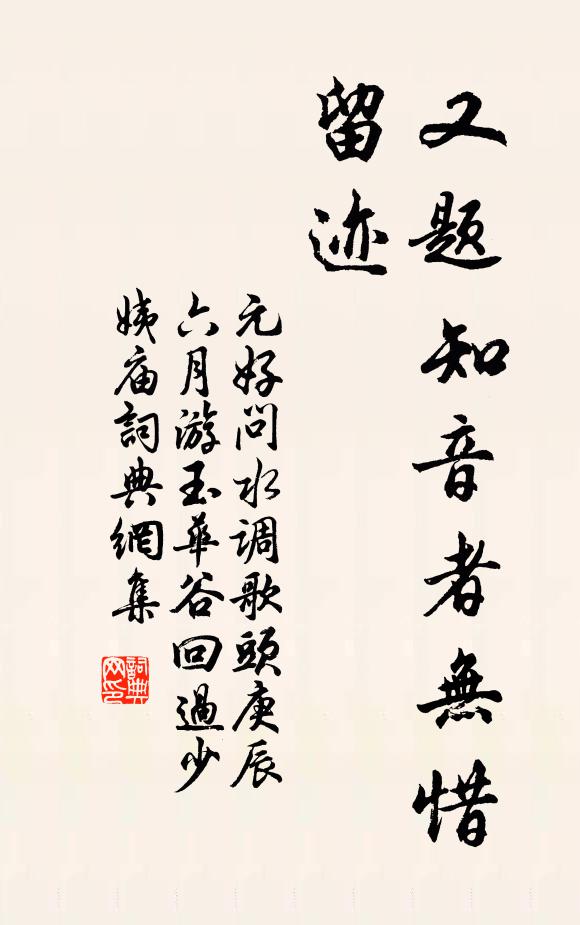 又题知音者無惜
留迹
元好问水调歌頭庚辰
六月游玉華谷回過少
姨庙詞典網集
詞典网印